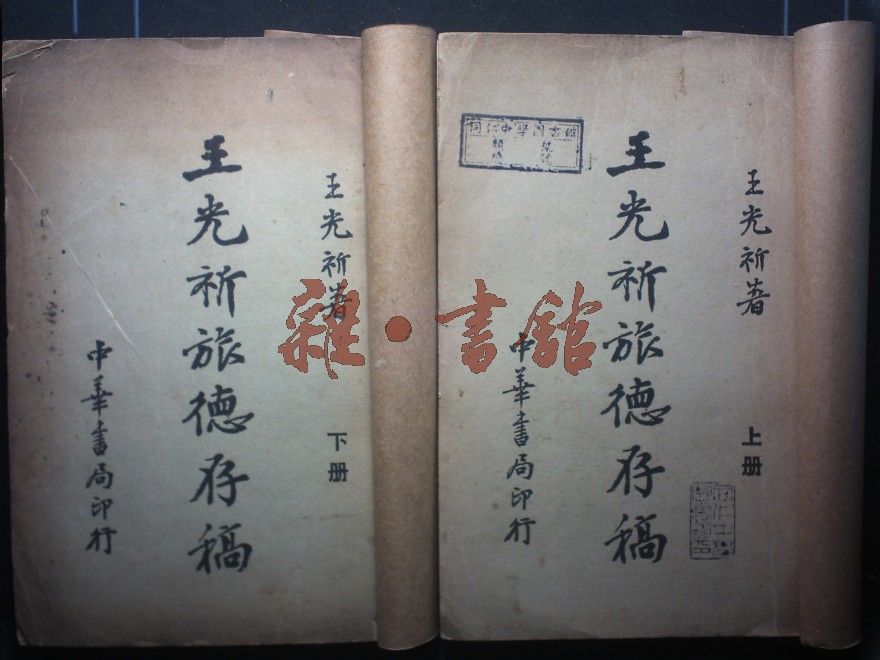 王光祈著
上册
王光祈旅德存稿
中華書局印行
同仁中學圖書館
王光祈著
下册
王光祈旅德存稿
中華書局印行
雜·書館